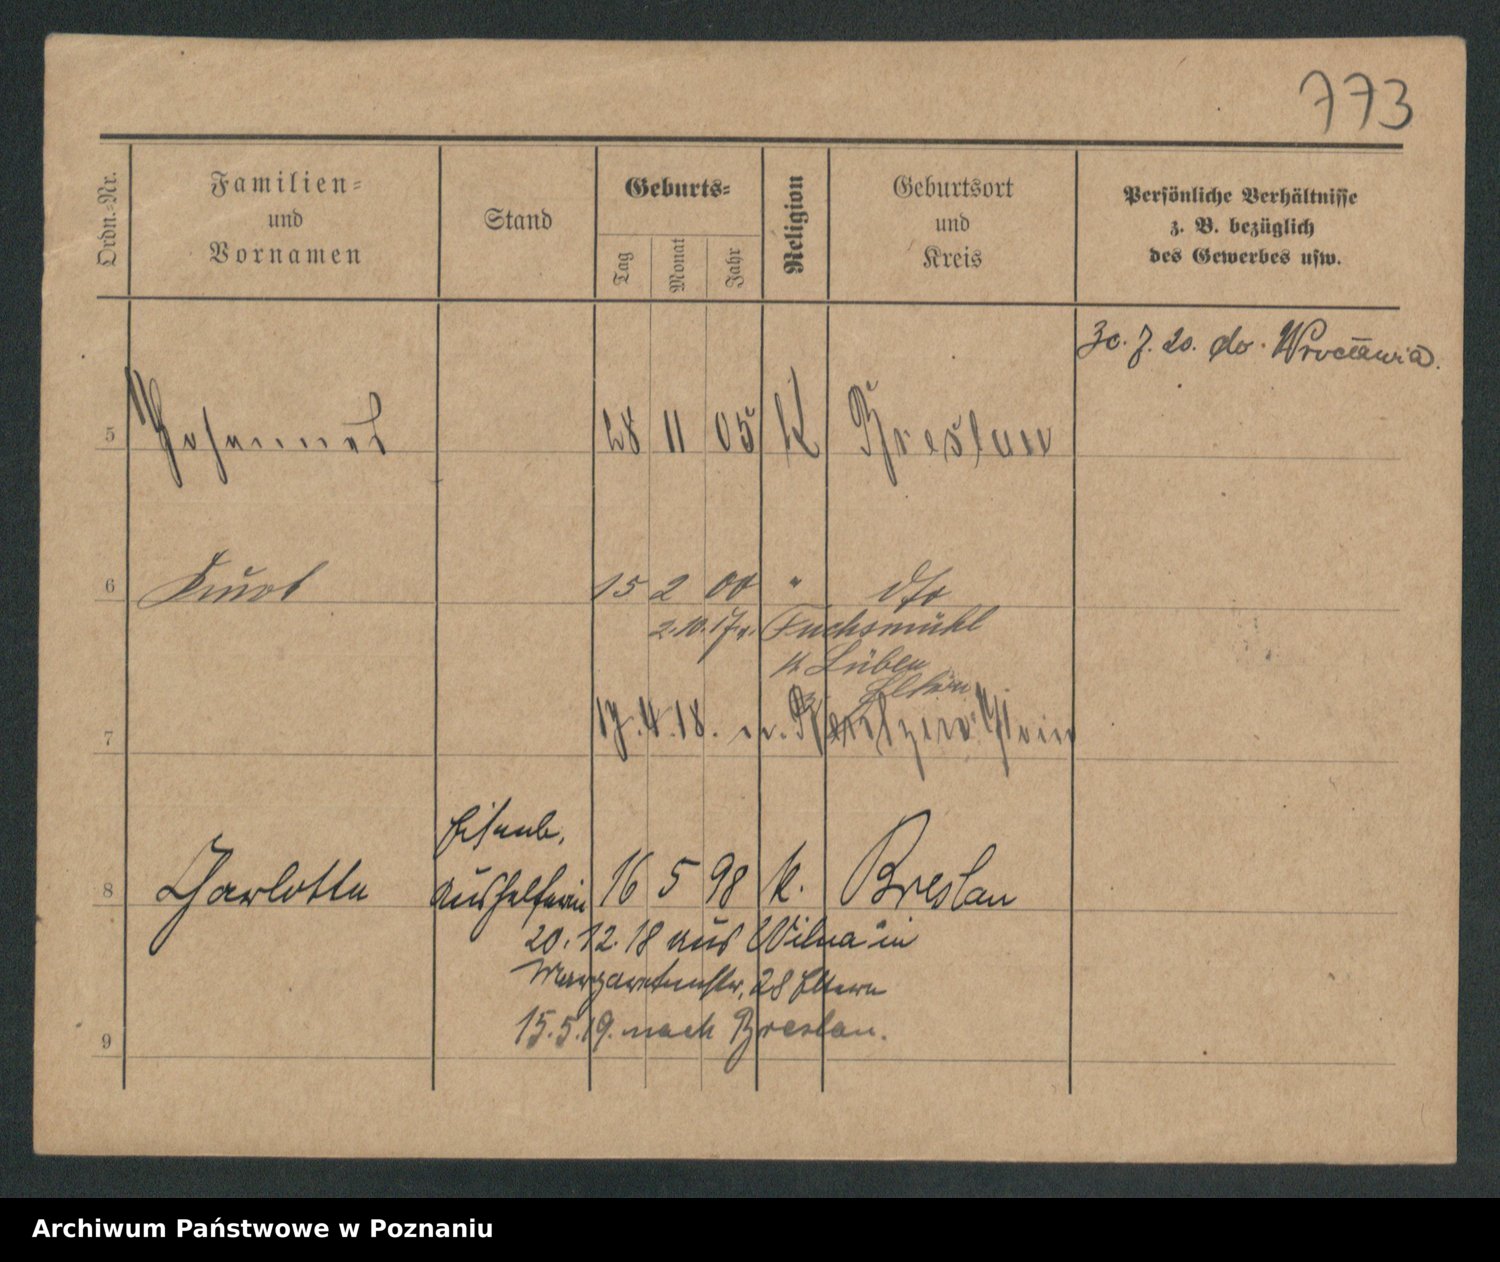 773
Ordn.-Nr.
Familien-
und
Vornamen
Stand
Geburts-
Tag
Monat
Jahr
Religion
Geburtsort
und
Kreis
Persönliche Verhältnisse
z. B. bezüglich
des Gewerbes usw.
30. 7. 20. do Wrocławia.
5 Johannes 28 11 05 K Breslau
6 Kurt 15 2 00 " dto
2.10.17 v. Fuchsmühl
k Lüben
z Eltern
7 17.4.18.
Eisenb.
8 Charlotte Aushelferin 16 5 98 k. Breslau
20.12.18 aus Wilna in
Margaretenstr. 28 Eltern
15.5.19. nach Breslau.
9
Archiwum Państwowe w Poznaniu